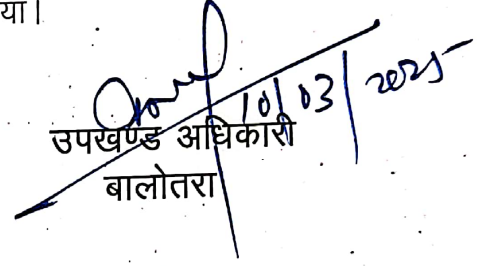 या।
10/03/2025
उपखण्ड अधिकारी
बालोतरा